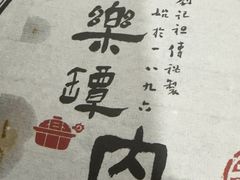 記祖傳秘製
始於一八九六
樂罈